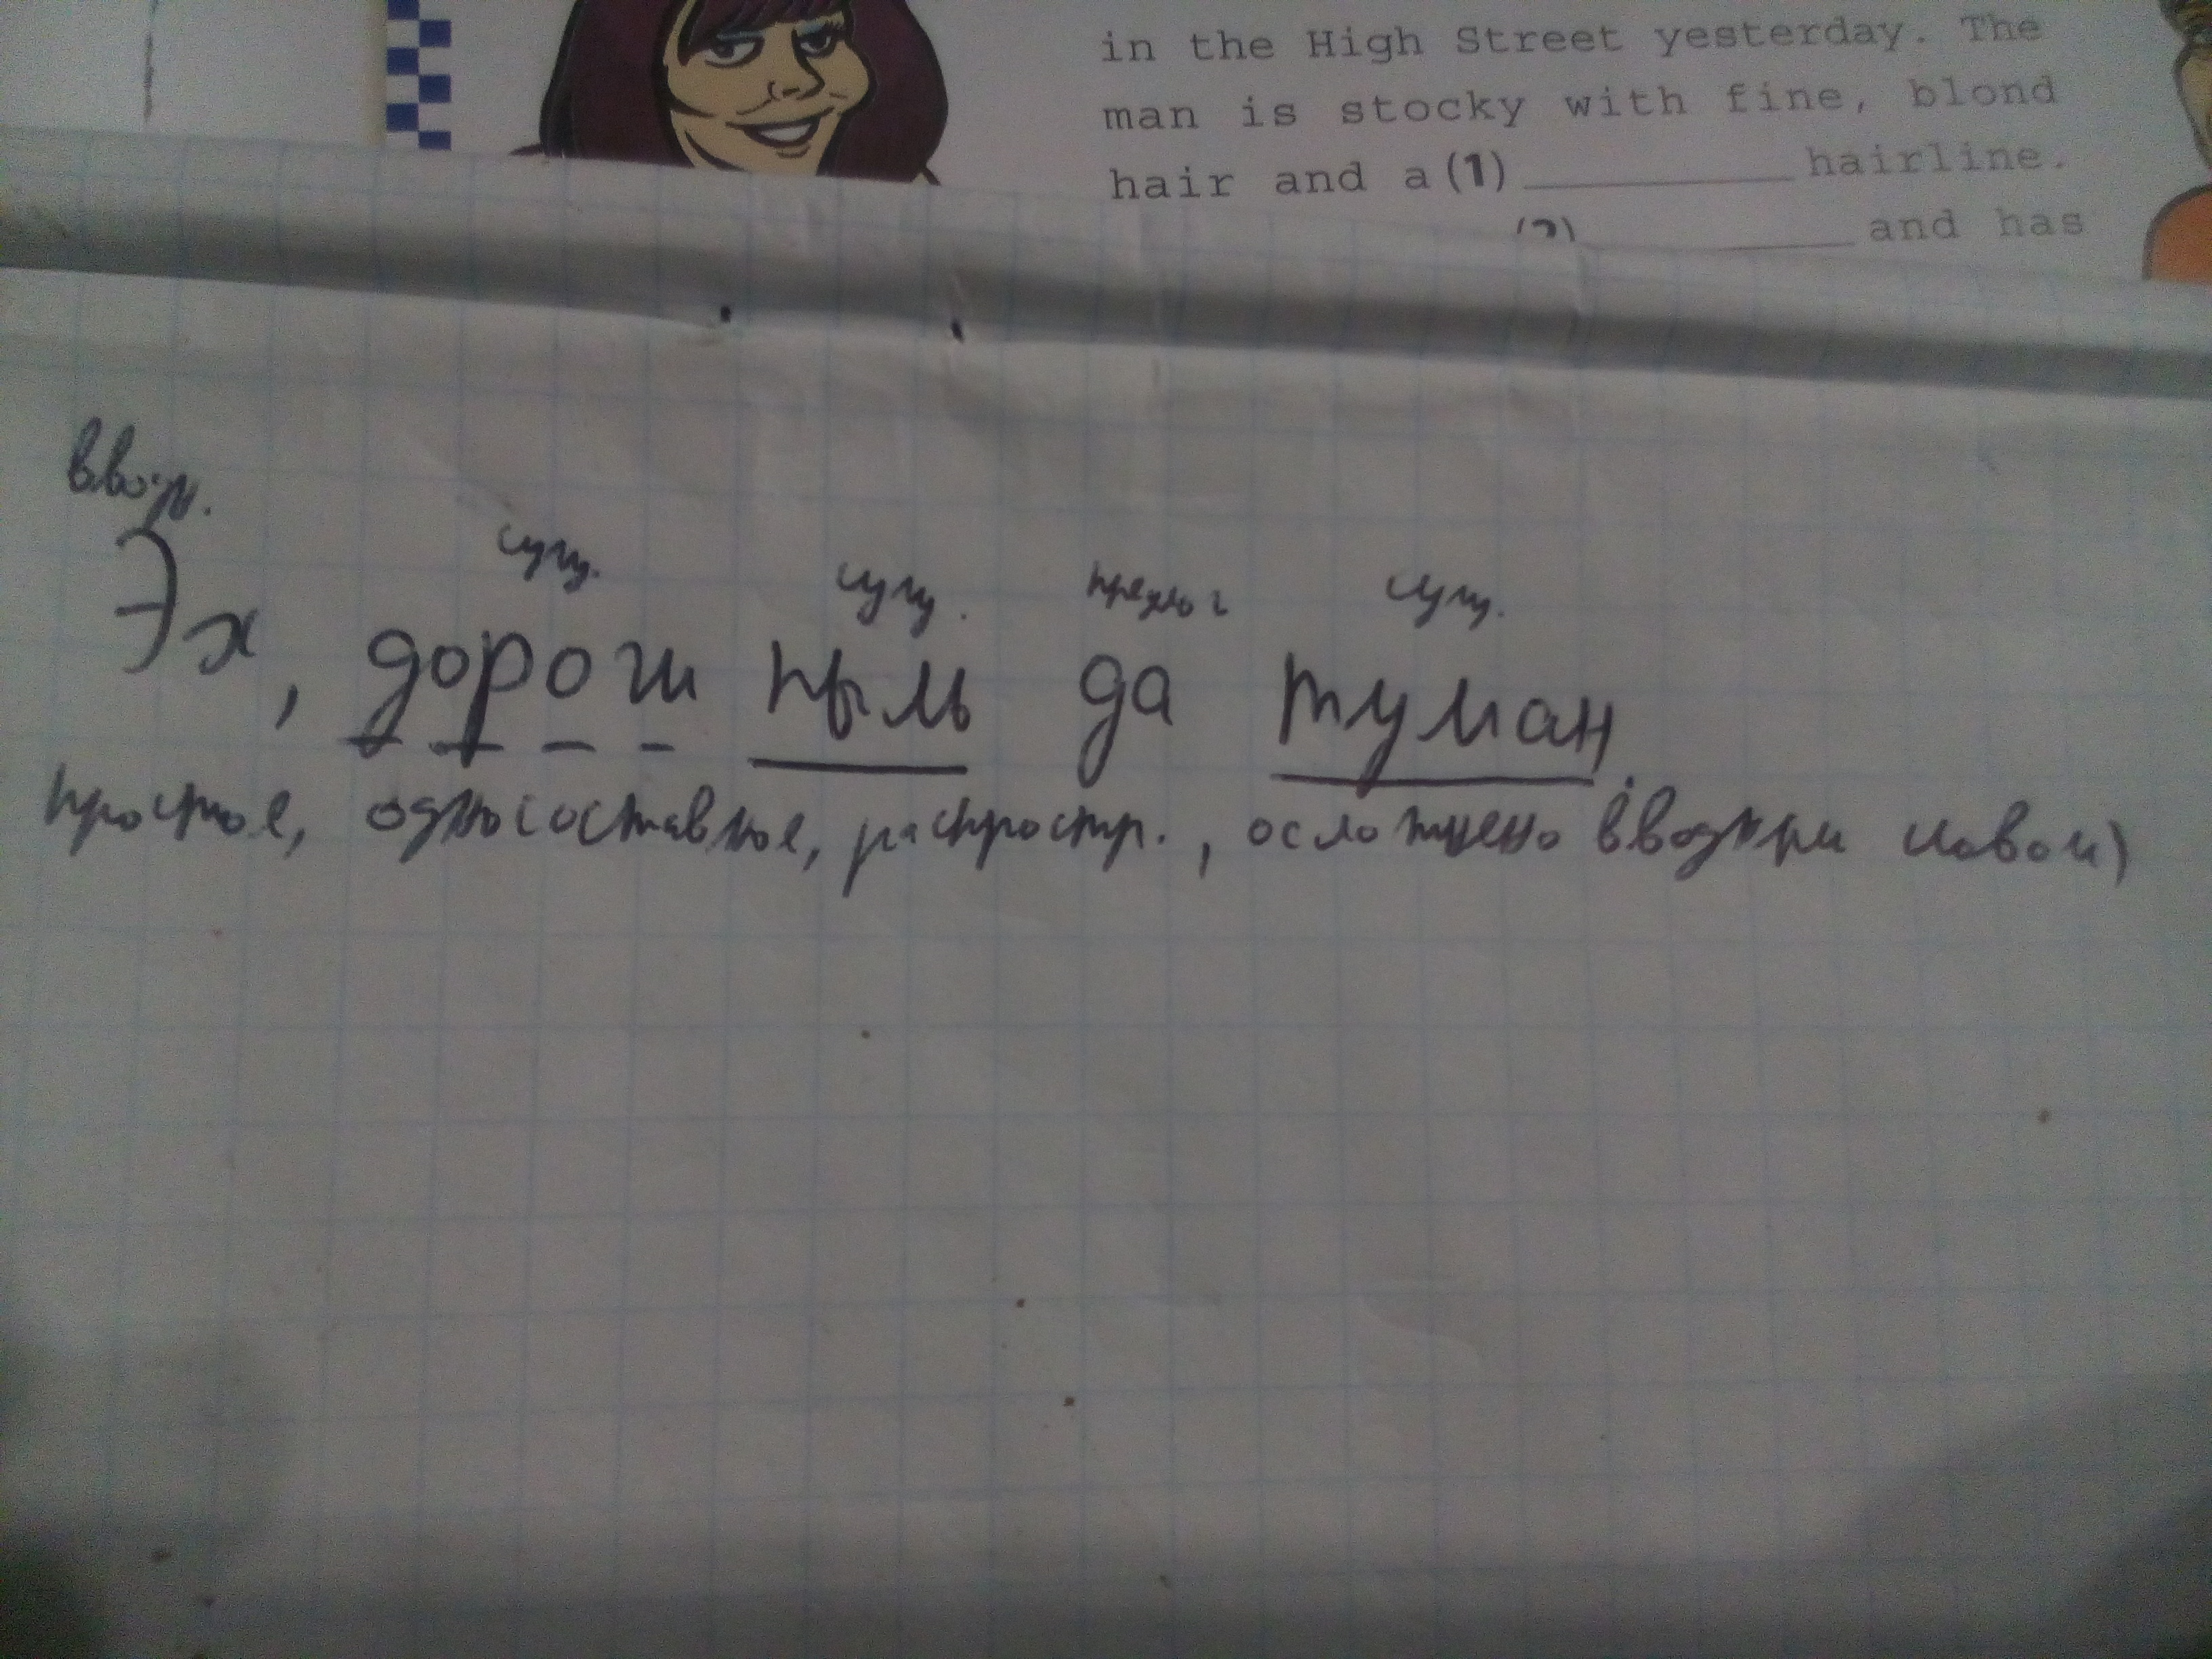 in the High Street yesterday. The
man is stocky with fine, blond
hair and a (1) hairline.
(2) and has
вводн.
сущ. сущ. предлог сущ.
Эх, дорог пыль да туман.
простое, односоставное, распростр., осложнено вводным словом)